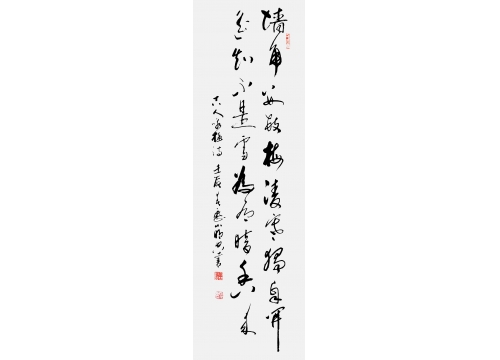 墙角数枝梅凌寒独自开
遥知不是雪为有暗香来
古人咏梅诗 壬辰